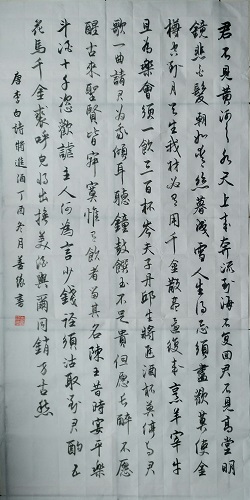 君不見黄河之水天上来奔流到海不復回君不見高堂明
鏡悲白髮朝如青絲暮成雪人生得意須盡歡莫使金
樽空對月天生我材必有用千金散盡還復来烹羊宰牛
且為樂會須一飲三百杯岑夫子丹邱生將進酒杯莫停與君
歌一曲請君為我傾耳聽鐘鼓饌玉不足貴但願長醉不願
醒古来聖賢皆寂寞惟有飲者留其名陳王昔時宴平樂
斗酒十千恣歡謔主人何為言少錢徑須沽取對君酌五
花馬千金裘呼兒將出換美酒與爾同銷万古愁
唐李白詩將進酒丁酉冬月善書